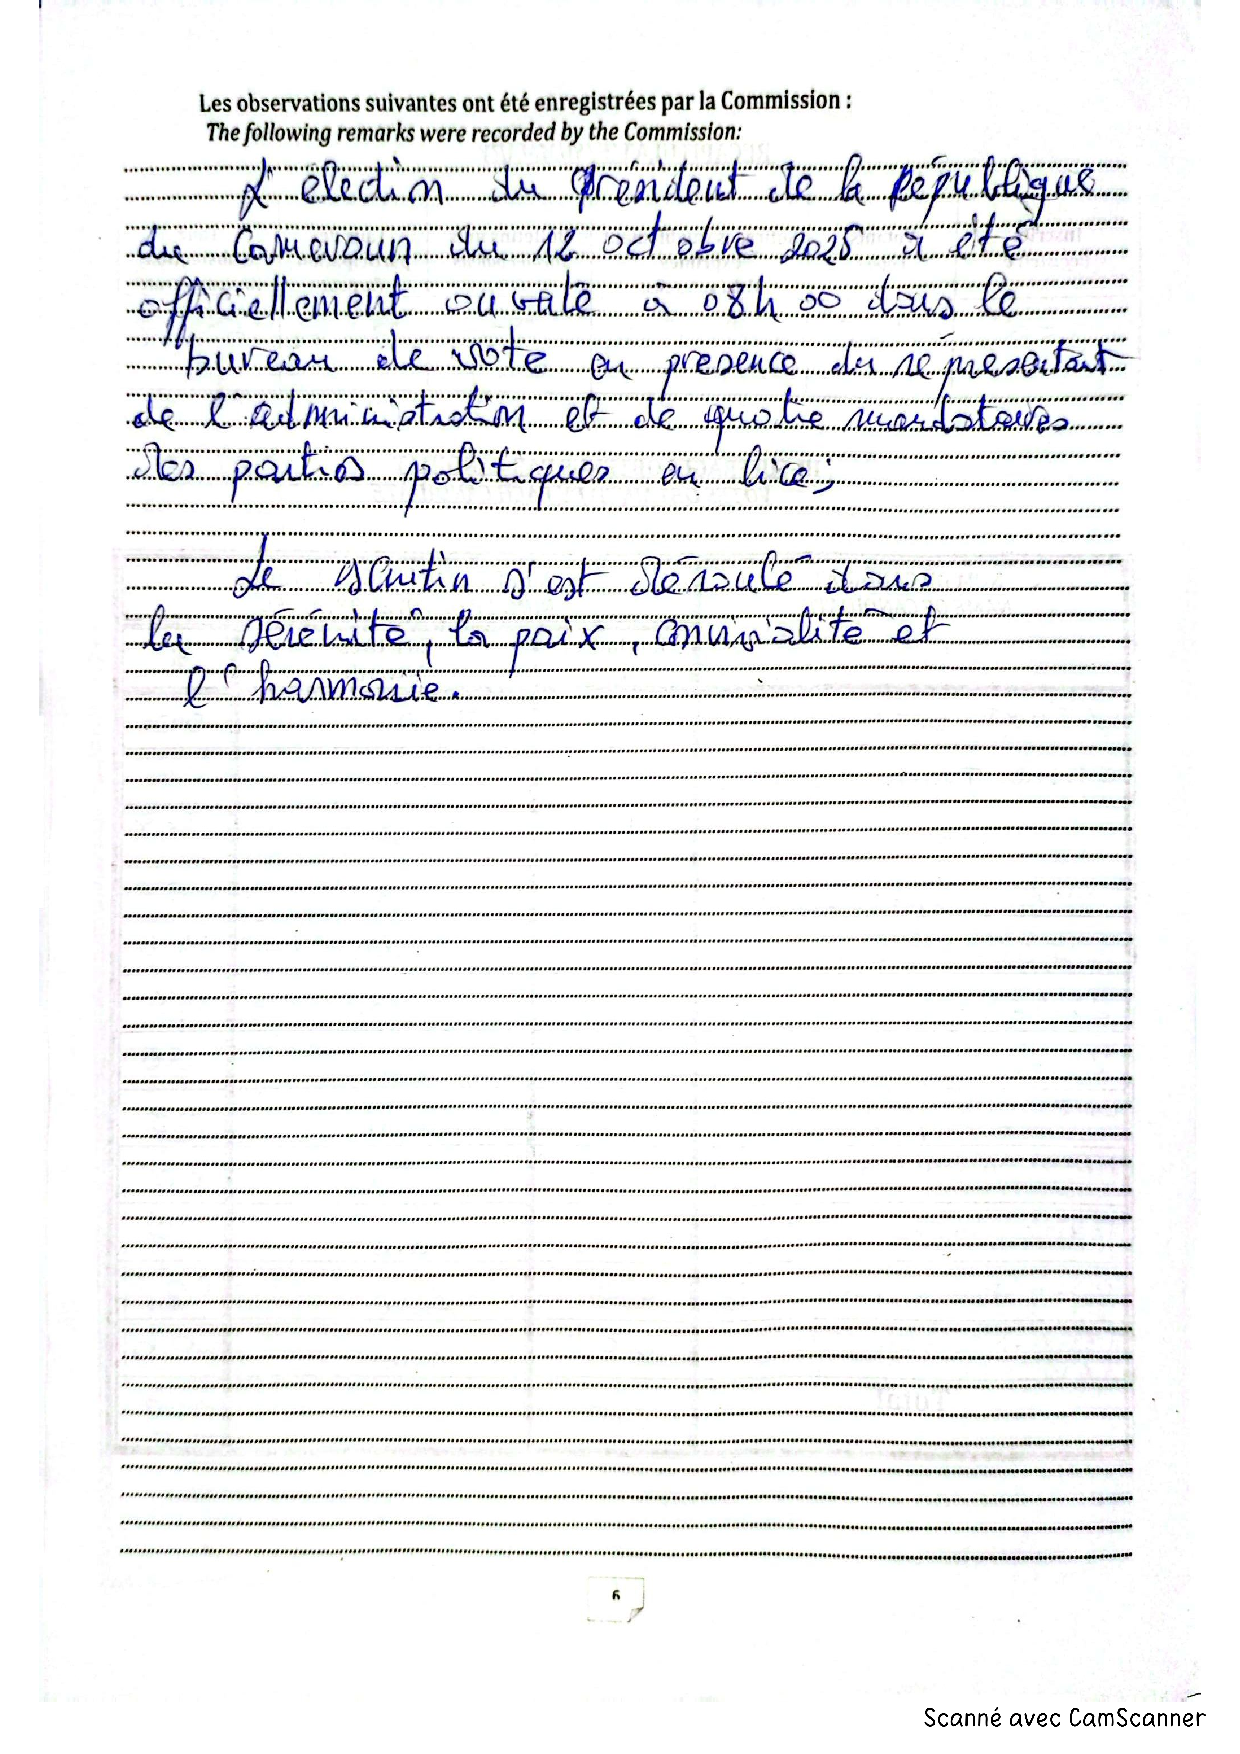 Les observations suivantes ont été enregistrées par la Commission :
The following remarks were recorded by the Commission:
L'élection du président de la République
du Cameroun du 12 octobre 2025 à été
officiellement ouverte à 08h 00 dans le
bureau de vote en presence du représentant
de l'administration et de quatre mandataires
des partis politiques en lice;
Le scrutin s'est déroulé dans
la sérénité, la paix, convivialité et
l'harmonie.
6
Scanné avec CamScanner